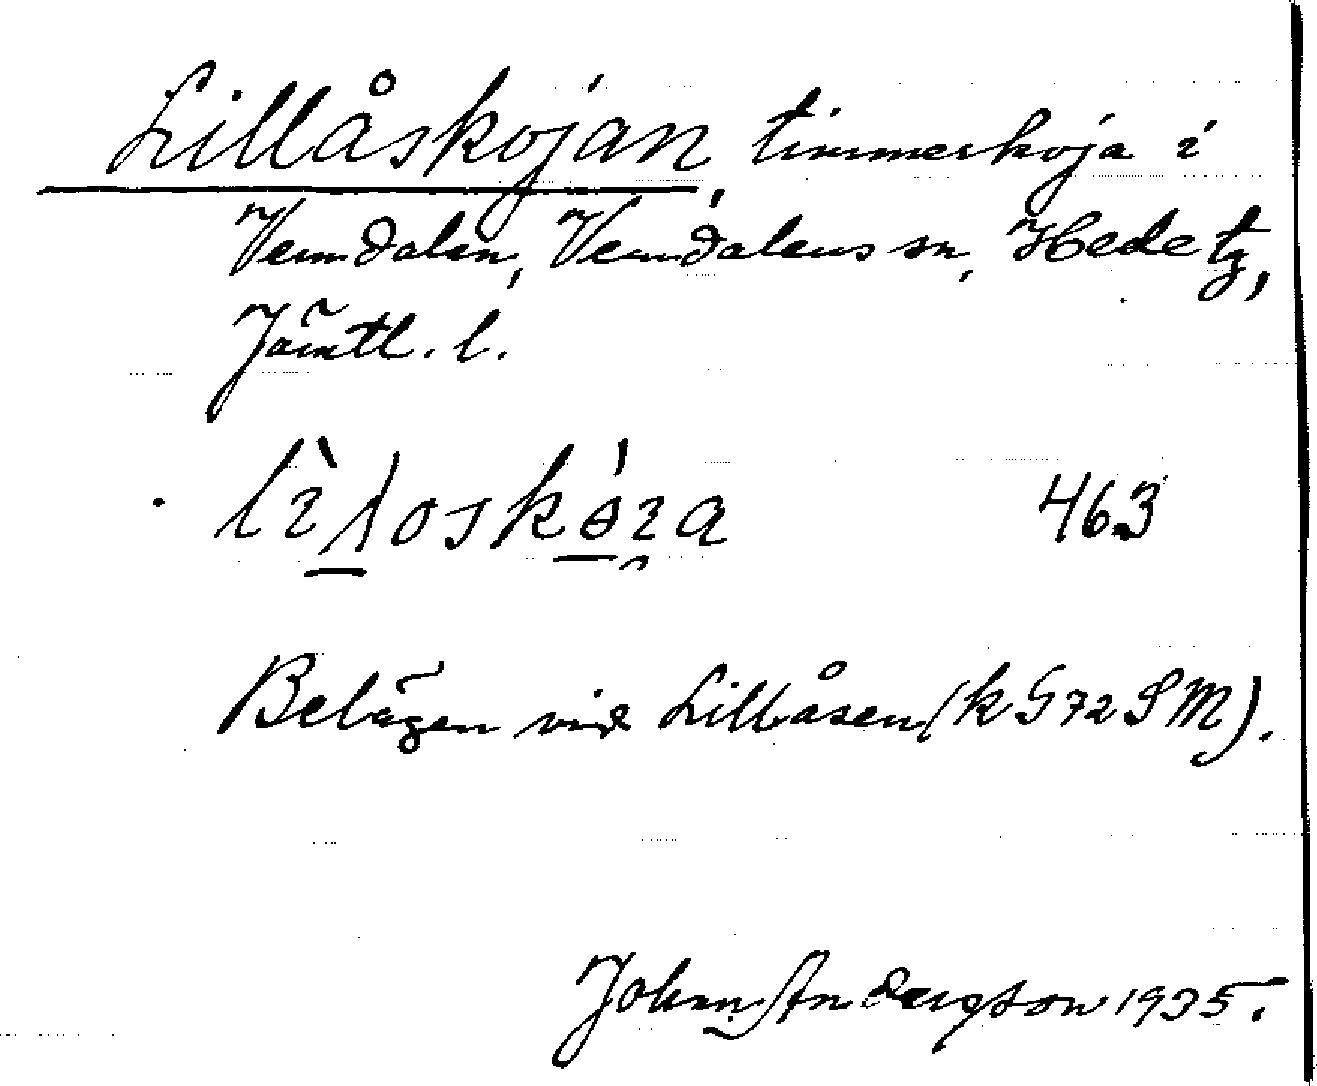 Lillåskojan, timmerkoja i
Vemdalen, Vemdalens sn, Hede tg,
Jämtl. l.
463
Belägen vid Lillåsen (k G 72 S M).
John Andersson 1935.